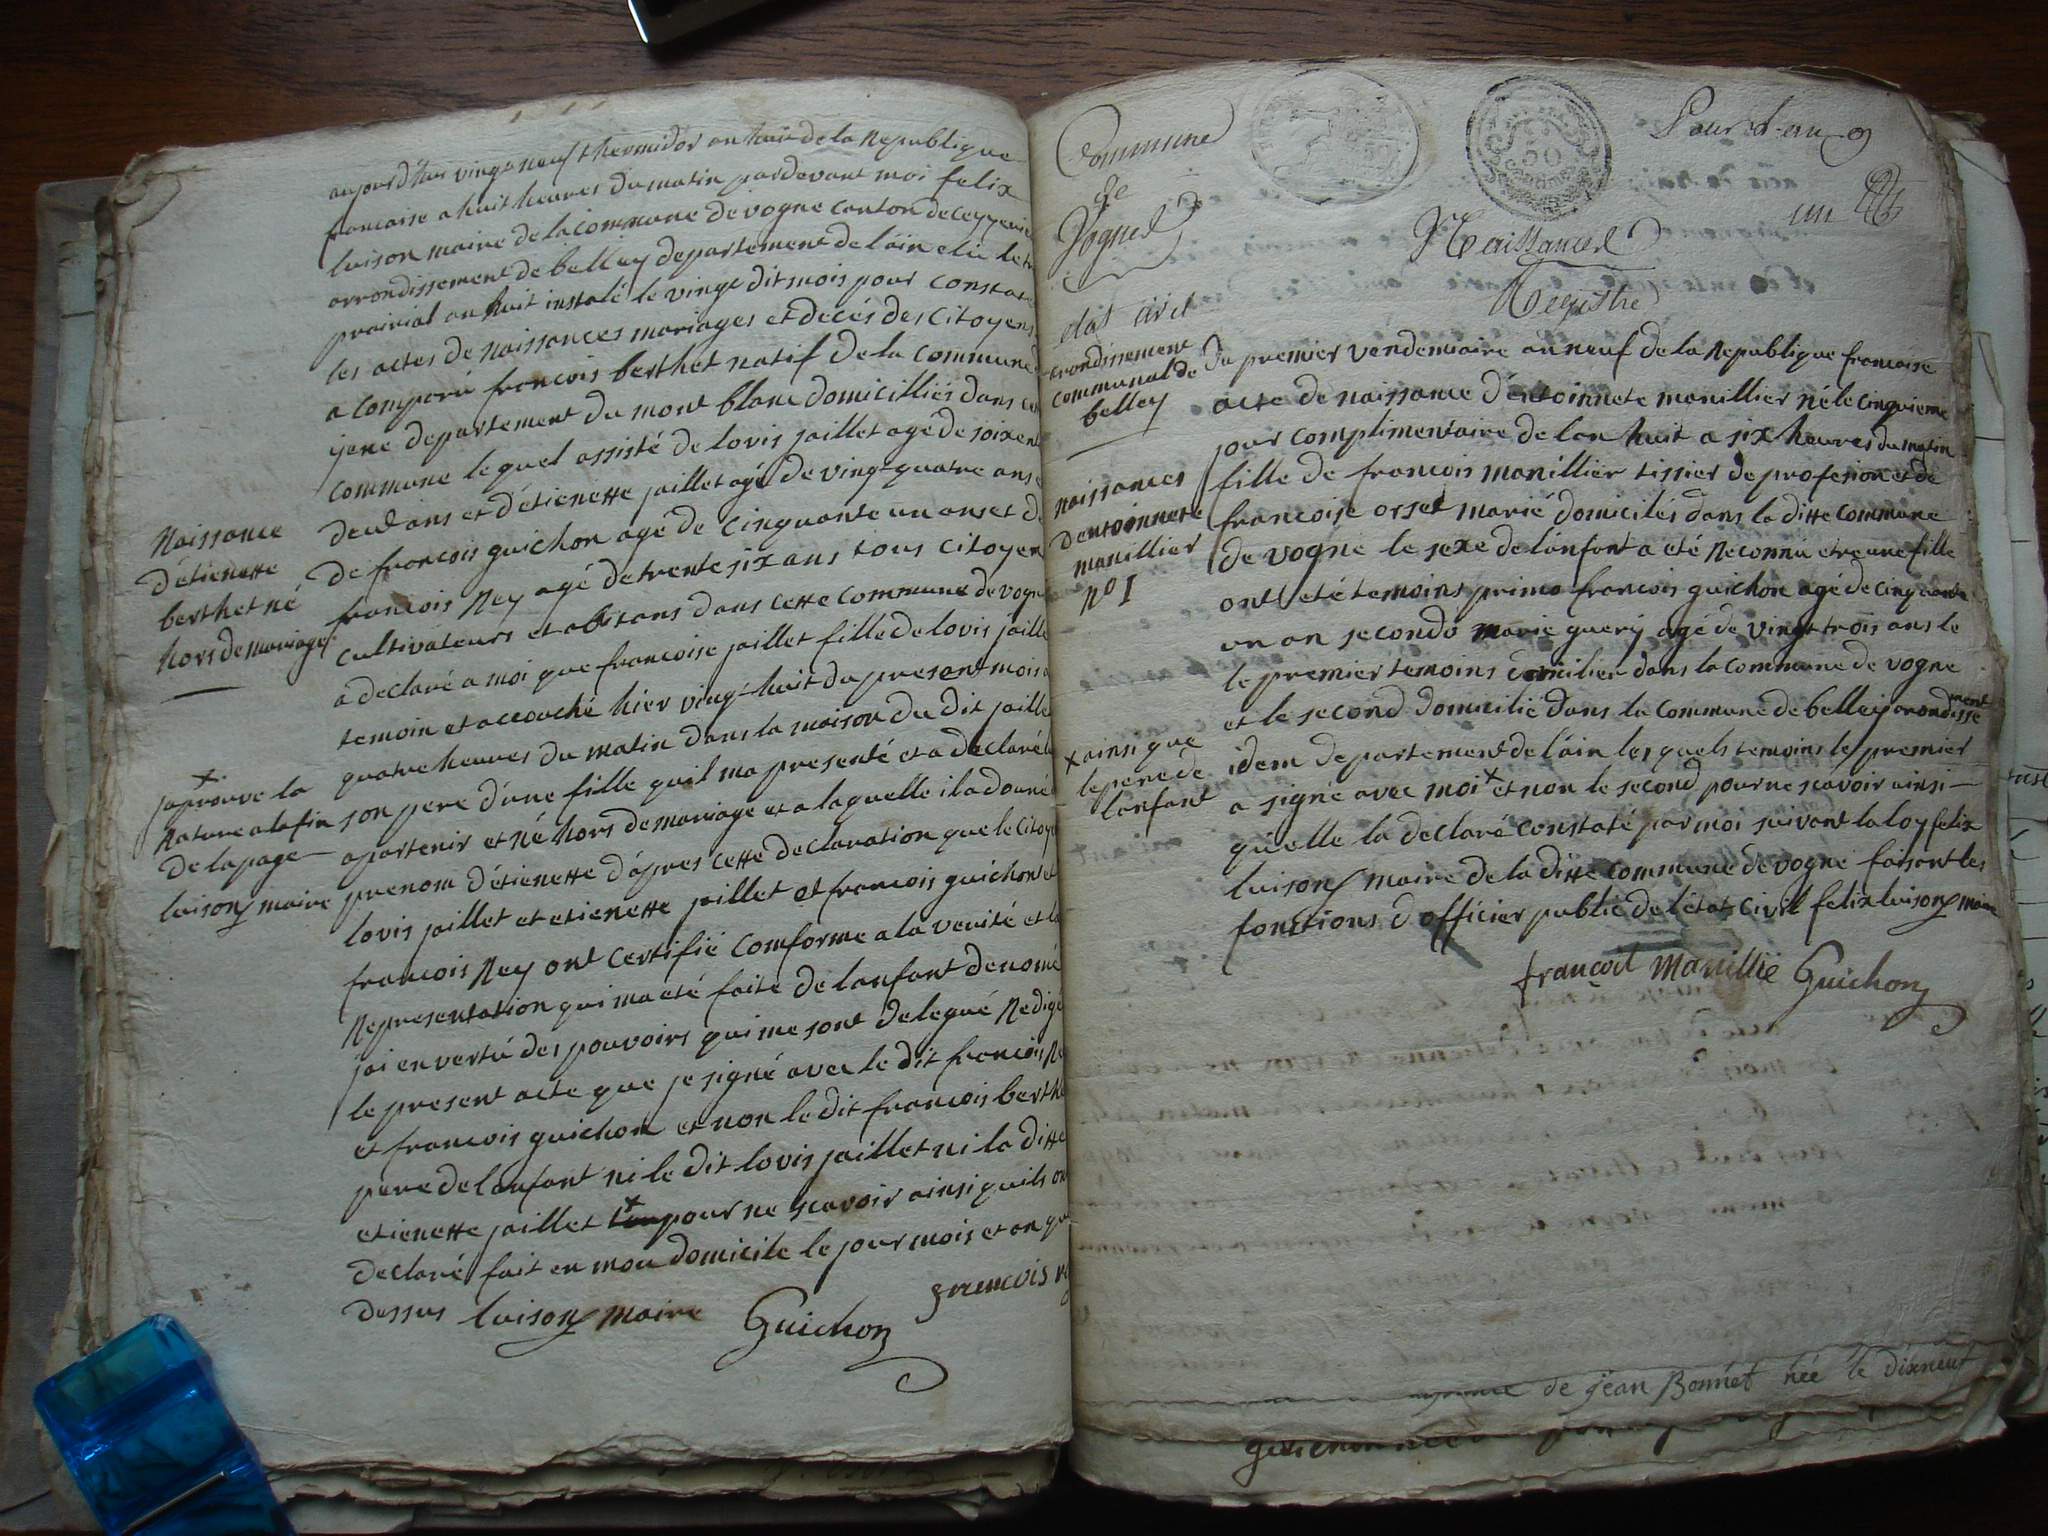 aujourdhui vingt neuf thermidor an huit de la Republique
francaise a huit heures du matin pardevant moi felix
luison maire de la commune de vogne canton de ceyzerie
arrondissement de belley departement de lain elu le
prairial an huit instalé le vingt dit mois pour constate
les actes de naissances mariages et décés des Citoyens
a comparu francois berthet natif de la commune
departement du mont blanc domicilliés dans
commune lequel assisté de lovis jaillet agé de soixent
deux ans et détienette jaillet agé de vingt quatre ans
de francois guichon agé de Cinquante un ans et de
francois Ney agé de trente six ans tous citoyen
cultivateurs et abitans dans cette commune de vogne
a declaré a moi que francoise jaillet fille de lovis jaille
temoin et accouché hier vingt huit du present mois a
quatre heures du matin dans la maison du dit jaille
son pere d'une fille quil ma presenté et a declaré
apartenir et né hors de mariage et a laquelle il a donné
prenom détienette d'apres cette declaration que le Citoye
lovis jaillet et etienette jaillet et francois guichon et
francois Ney ont certifié comforme a la verité et la
Representation qui ma eté faite de lanfant denomé
jai en vertu des pouvoirs qui me sont delegué Redigé
le present acte que je signé avec le dit francois Ne
et francois guichon et non le dit francois berthe
pere de lanfant ni le dit lovis jaillet ni la ditte
etienette jaillet x pour ne scavoir ainsi quils on
declaré fait en mon domicile le jour mois et an que
dessus luison maire Guichon francois
Naissance
détienette
berthet né
hors de mariage
x
japrouve la
Rature a la fin
de la page
luison maire
Commune
de
Vogne
etat civil
arondissement
communal de
belley
Pour l'an 9
un
50
Naissances
Registre
Du premier vendemiaire an neuf de la Republique francaise
acte de naissance d'entoinnete manillier né le cinquieme
jour complimentaire de lan huit a six heures du matin
fille de francois manillier tissier de profesion et de
francoise orset marié domicilés dans la ditte commune
de vogne le sexe de lanfant a eté Reconnu etre une fille
ont eté temoins primo francois guichon agé de cinquante
un an secondo marie guery agé de vingt trois ans le
le premier temoins domicilier dans la commune de vogne
et le second domicilié dans la commune de belley arondisse
ment
idem departement de lain les quels temoins le premier
a signé avec moi x et non le second pour ne scavoir ainsi
qu'elle la declaré constaté par moi suivant la loy felix
luison maire de la ditte commune de vogne faisant les
fonctions d officier public de l'état Civil felix luison maire
françoit Manillié Guichon
naissances
dentoinnete
manillier
No 1
x ainsi que
le pere de
lanfant
de jean Bonnet née le dixneuf